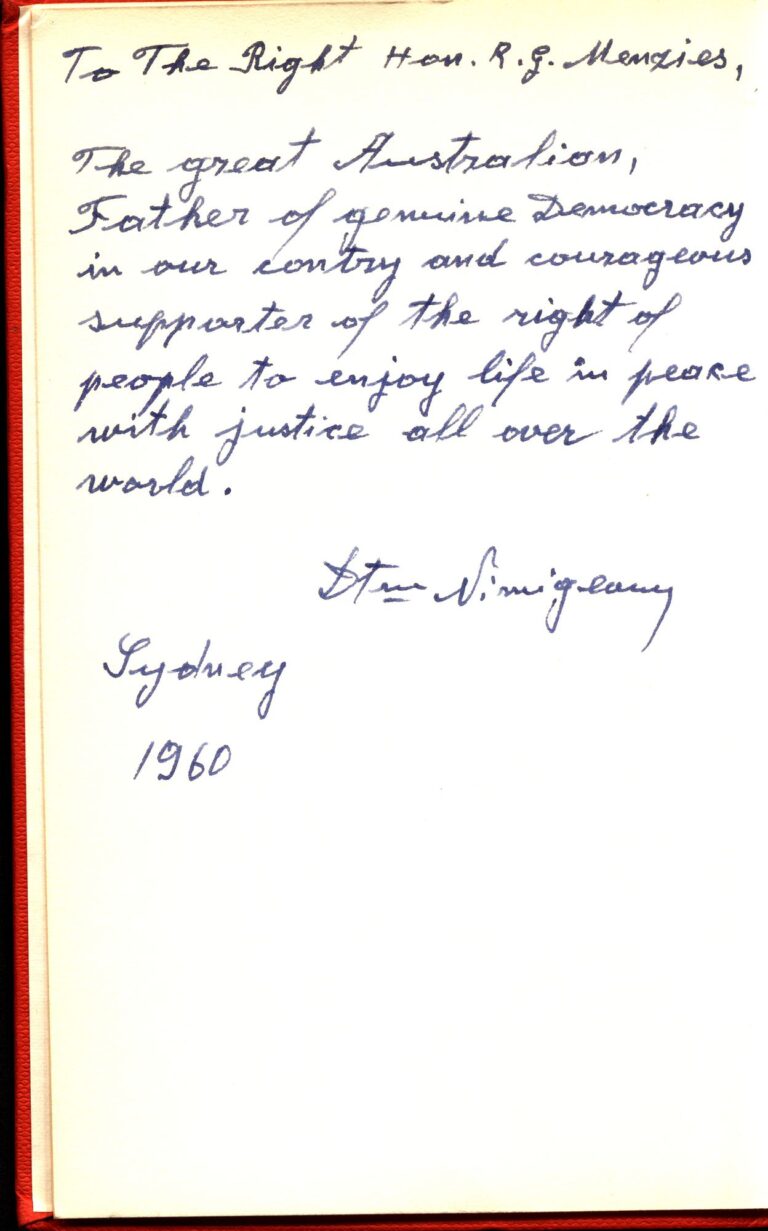 To The Right Hon. R. G. Menzies,
The great Australian,
Father of genuine Democracy
in our contry and courageous
supporter of the right of
people to enjoy life in peace
with justice all over the
world.
Sydney
1960